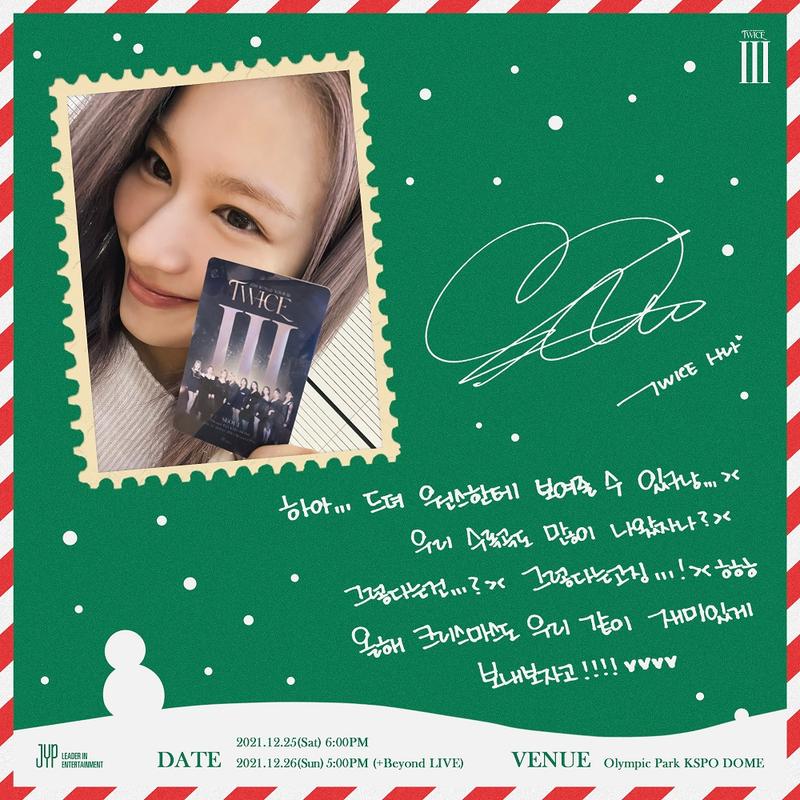 TWICE
III
TWICE
III
SEOUL
TWICE 사나
하아... 드뎌 원스한테 보여줄 수 있구낭...><
우리 수록곡도 많이 나왔자나?><
그렇다는건...?>< 그렇다는고징...!>< ㅎㅎㅎ
올해 크리스마스도 우리 같이 재미있게
보내보자고!!!! ♥♥♥♥
JYP LEADER IN
ENTERTAINMENT
DATE
2021.12.25(Sat) 6:00PM
2021.12.26(Sun) 5:00PM (+Beyond LIVE)
VENUE Olympic Park KSPO DOME